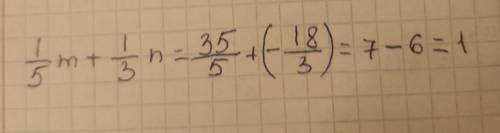 1/5 m + 1/3 n = 35/5 + (- 18/3) = 7 - 6 = 1